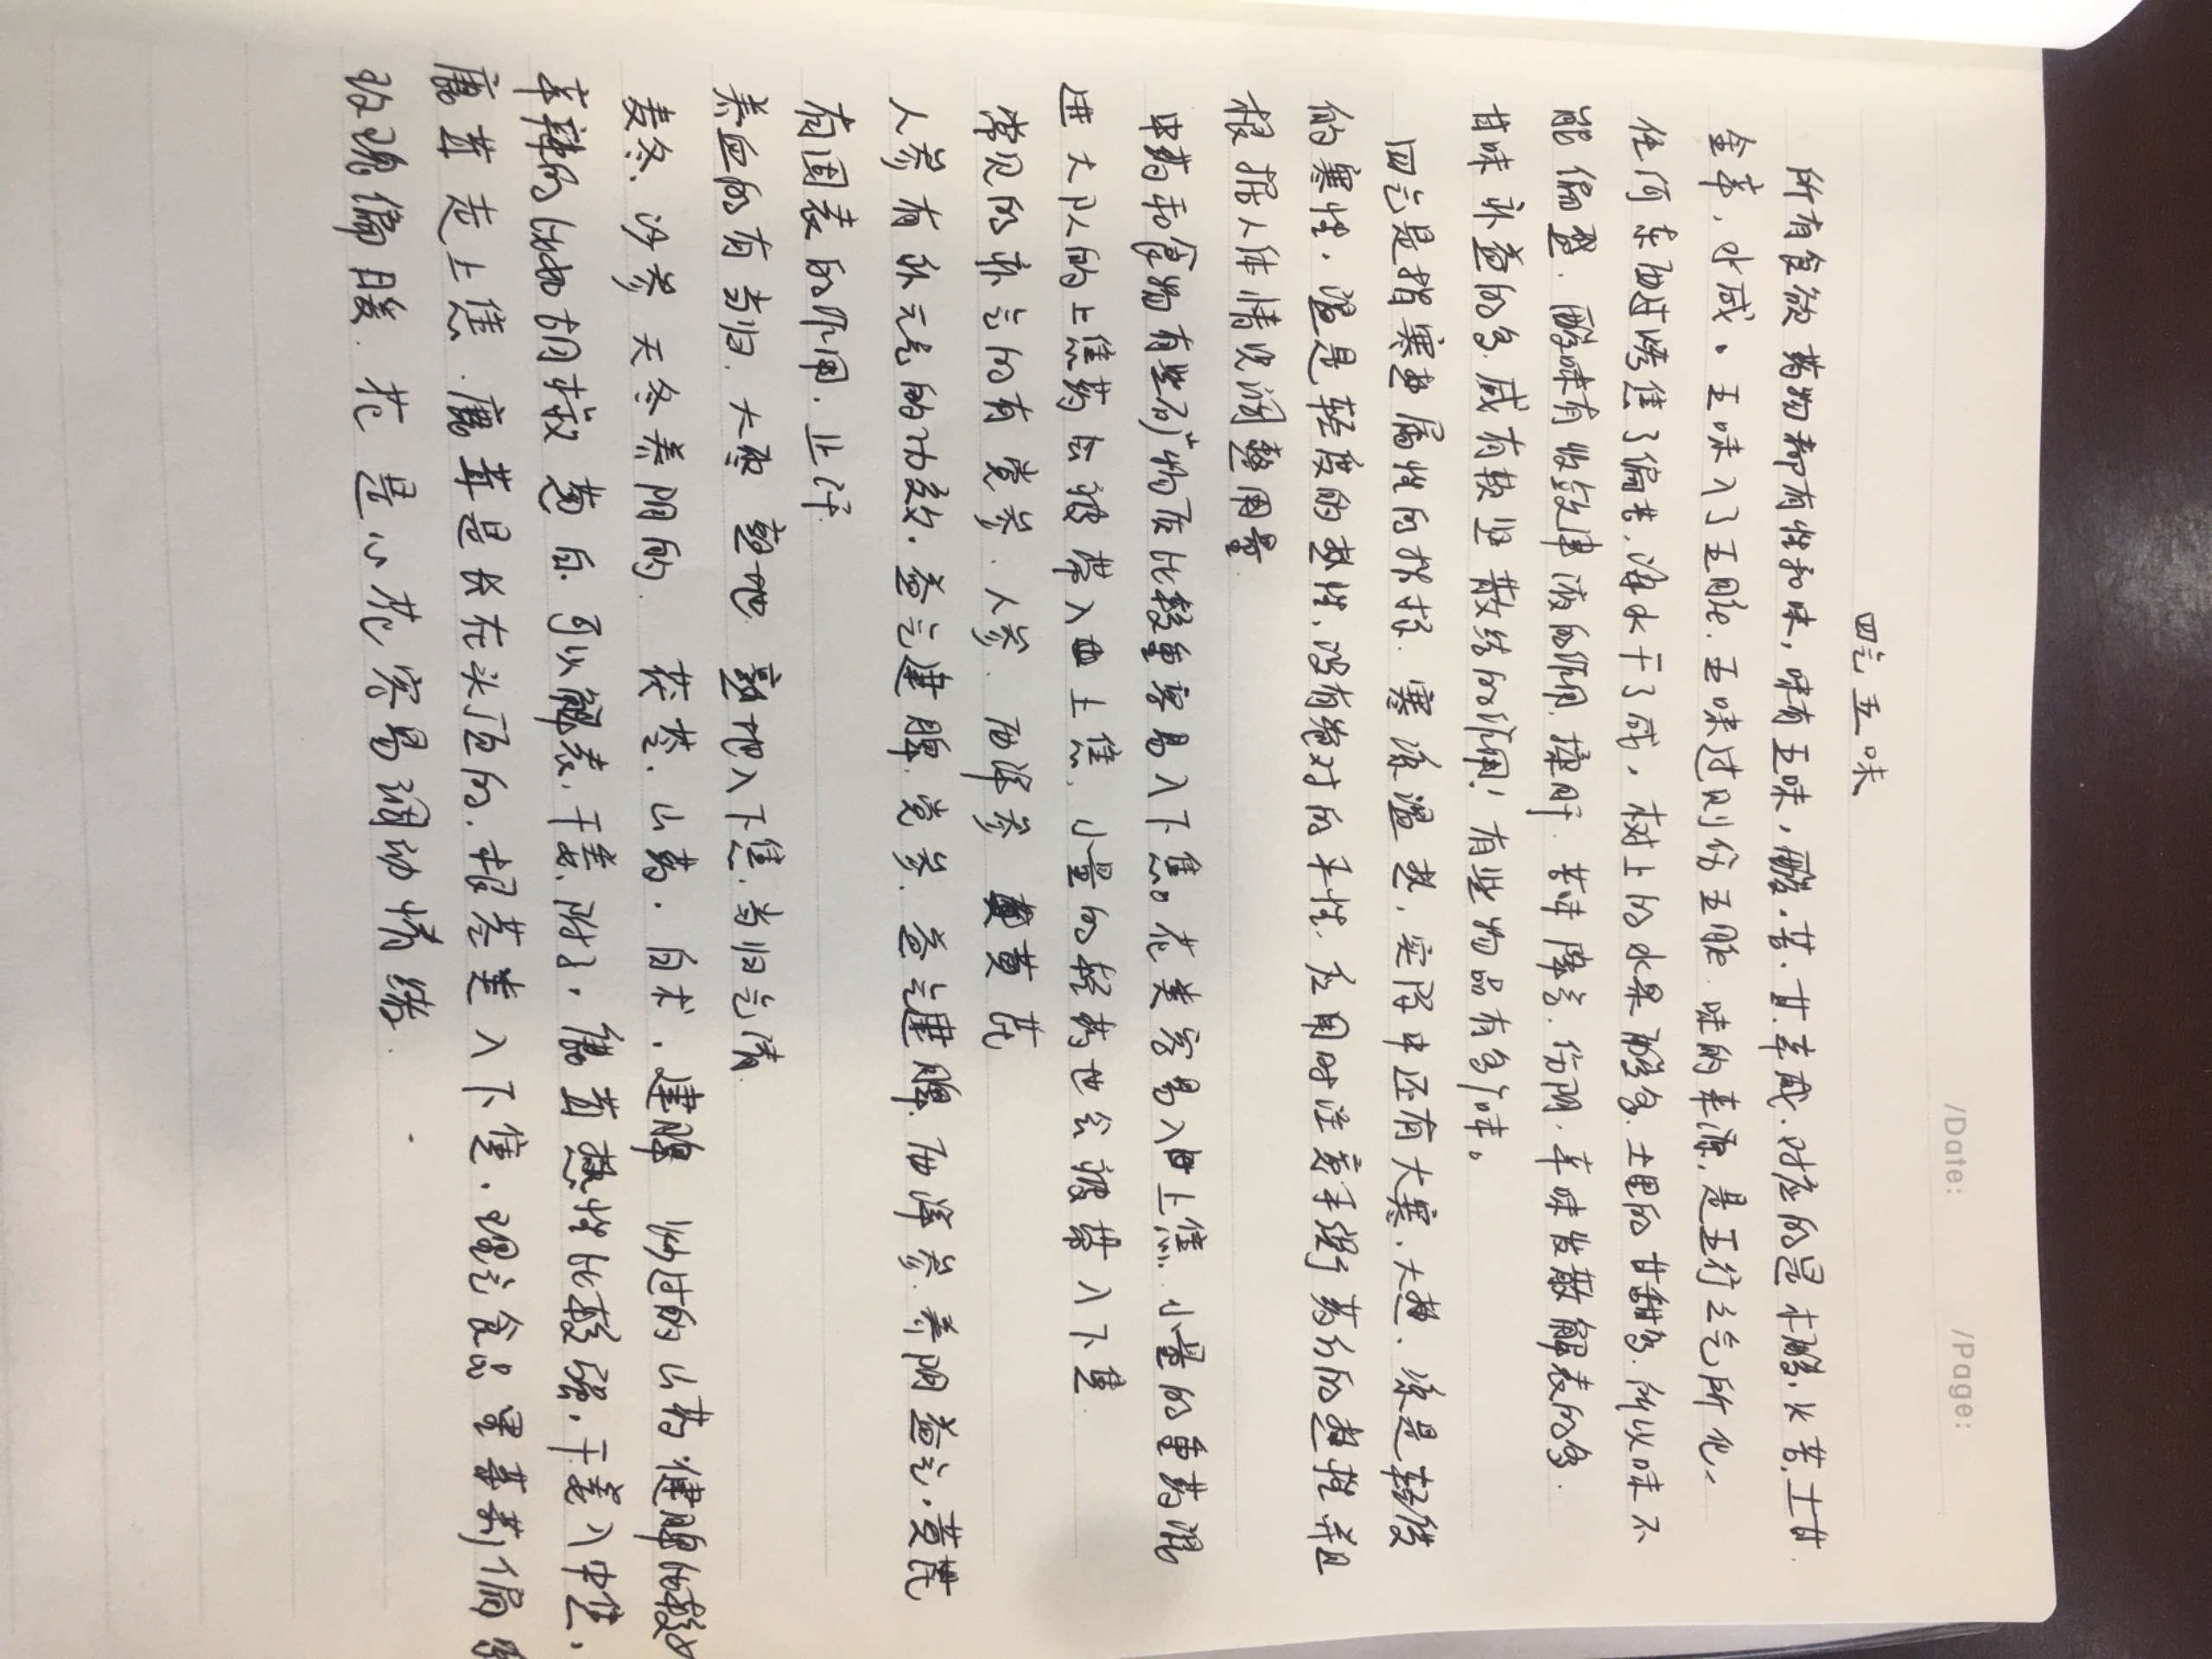 /Date:
/Page:
四气五味
所有食饮药物都有性和味，味有五味，酸．苦．甘．辛咸．对应的是木酸．火苦．土甘．
金辛．水咸．五味入了五脏．五味过则伤五脏．味的来源．是五行之气所化，
任何东西过烤焦了偏苦．海水干了咸，树上的水果酸多．土里的甘甜多．所以味不
能偏盛．酸味有收敛津液的作用．揉肝．苦味降气．伤阴．辛味发散解表的多．
甘味补益的多．咸有软坚散结的作用！有些物品有多个味。
四气是指寒热属性的权指．寒凉温热，实际中还有大寒．大热、凉是轻度
的寒性．温是轻度的热性．没有绝对的平性．应用时注意平衡药方的热性并且
根据人体情况调整用量．
中药和食物有些矿物质比较重容易入下焦。花类容易入上焦．小量的重药混
进大队的上焦药会被带入上焦．小量的轻药也会被带入下焦．
常见的补气的有党参．人参．西洋参 黄芪
人参有补元气的功效．益气健脾．党参．益气健脾．西洋参．养阴益气．黄芪
有固表的作用．止汗．
养血的有当归．大枣 熟地 熟地入下焦．当归气清．
麦冬．沙参 天冬养阴的． 茯苓．山药．白术．健脾 炒过的山药健脾的较好
辛辣的比如胡椒葱白．可以解表．干姜．附子，偏热性比较强．干姜入中焦．
鹿茸走上焦．鹿茸是长在头顶的．根茎类入下焦．理气食品里茉莉偏
玫瑰偏暖．花是心花容易调动情绪．